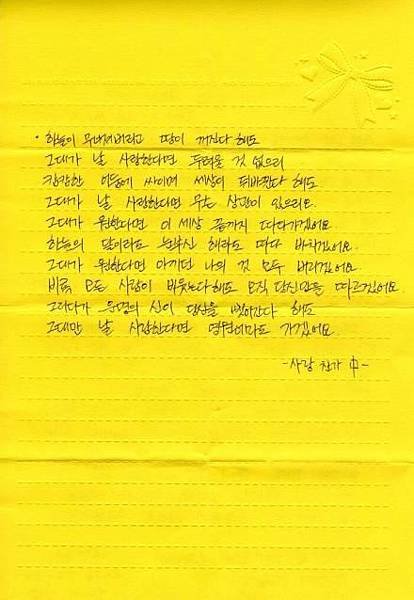 · 하늘이 무너져버리고 땅이 꺼진다 해도
그대가 날 사랑한다면 두려울 것 없으리
캄캄한 어둠에 싸이며 세상이 뒤바뀐다 해도
그대가 날 사랑한다면 무슨 상관이 있으리요.
그대가 원한다면 이 세상 끝까지 따라가겠어요
하늘의 달이라도 눈부신 해라도 따다 바치겠어요.
그대가 원한다면 아끼던 나의 것 모두 버리겠어요.
비록 모든 사람이 비웃는다해도 오직 당신만을 따르겠어요
그러다가 운명의 신이 당신을 빼앗아간다 해도
그대만 날 사랑한다면 영원이라도 가겠어요.
-사랑 찬가 中-